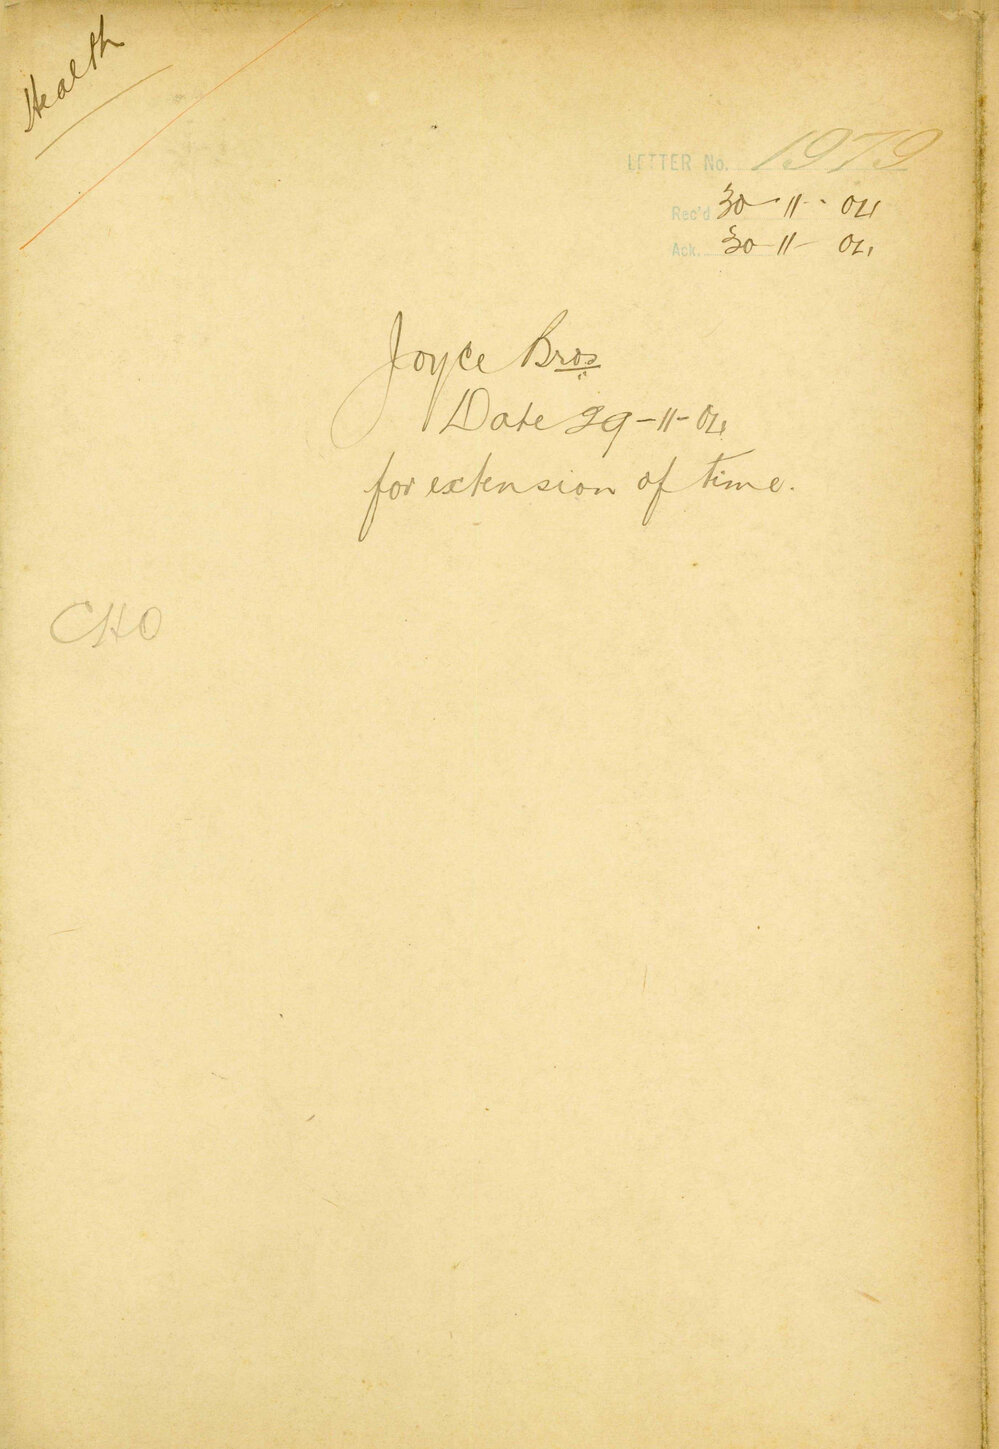 Health
LETTER No. 1979
Rec'd 30-11-04
Ack. 30-11-04
Joyce Bros
Date 29-11-04
for extension of time.
CHO